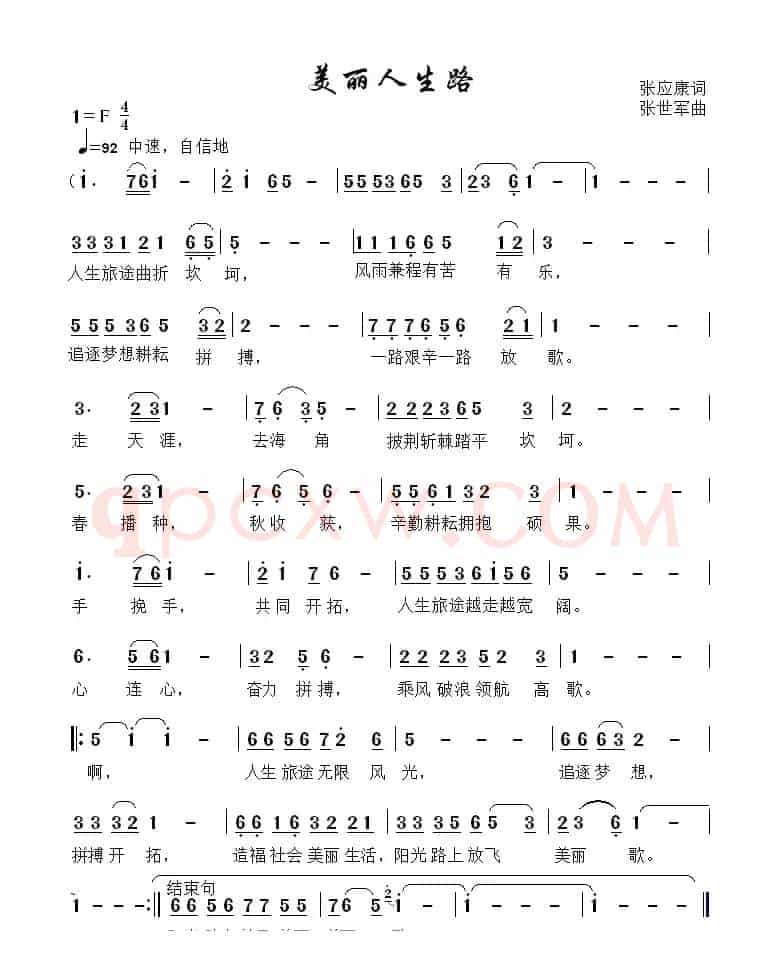 美丽人生路
张应康词
张世军曲
1=F 4/4
♩=92 中速，自信地
(i· 76i - | 2̇ i 65 - | 555365 3 | 23 6 1 - | 1 - - - |
3331 21 65 | 5 - - - | 111665 12 | 3 - - - |
人生旅途曲折 坎 坷， 风雨兼程有苦 有 乐，
555365 32 | 2 - - - | 777656 21 | 1 - - - |
追逐梦想耕耘 拼 搏， 一路艰辛一路 放 歌。
3· 231 - | 76 35 - | 222356 3 | 2 - - - |
走 天 涯， 去海 角 披荆斩棘踏平 坎 坷。
5· 231 - | 76 56 - | 556132 3 | 1 - - - |
qpcxw.COM
春 播 种， 秋收 获， 辛勤耕耘拥抱 硕 果。
i· 76i - | 2̇i 76 - | 55536i56 | 5 - - - |
手 挽手， 共同 开拓， 人生旅途越走越宽 阔。
6· 561 - | 32 56 - | 22 23 52 3 | 1 - - - |
心 连心， 奋力 拼搏， 乘风 破浪 领航 高 歌。
‖: 5 i i - | 66 56 72̇ 6 | 5 - - - | 66 63 2 - |
啊， 人生 旅途 无限 风 光， 追逐 梦 想，
33 32 1 - | 66 16 32 21 | 33 35 65 3 | 23 6 1 - |
拼搏 开 拓， 造福 社会 美丽 生活， 阳光 路上 放飞 美丽 歌。
结束句
1 - - - :‖ 66 56 77 55 | 76 5 2̇ i - | i - - - | i - - - ‖